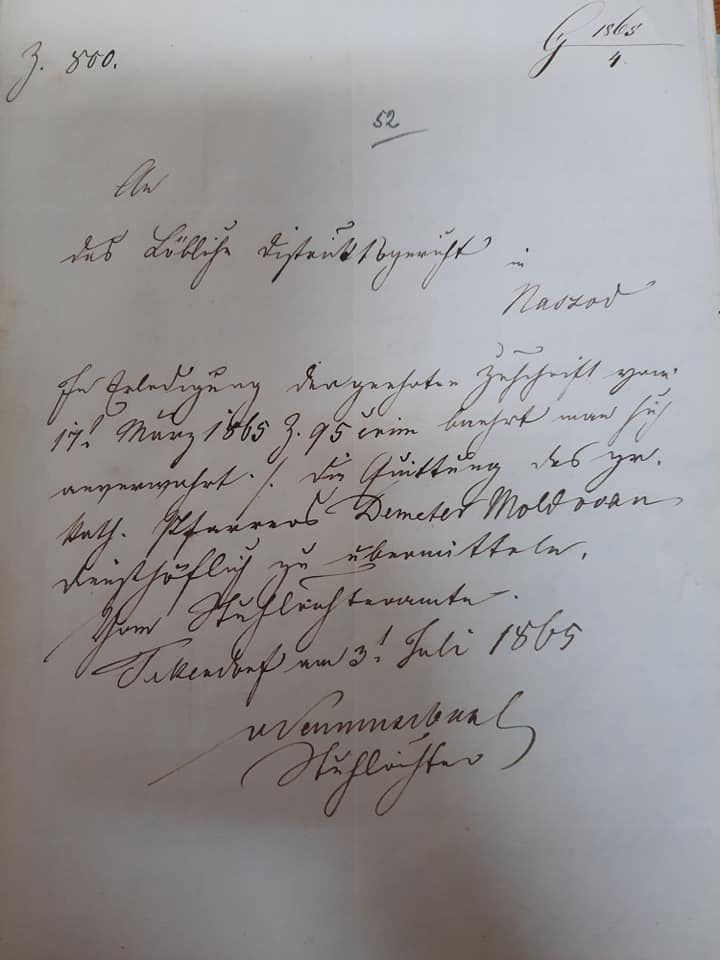 Z. 800.
G 1865/4
52
An
das Löbliche Distriktsgericht in
Naszod
In Erledigung der geehrten Zuschrift vom
17t März 1865 Z. 95 crim beehrt man sich
anverwahrt ·/. die Quittung des gr.
kath. Pfarrers Demeter Moldovan
diensthöflich zu übermitteln.
Vom Stuhlrichteramte.
Tekendorf am 3t Juli 1865
Stuhlrichter